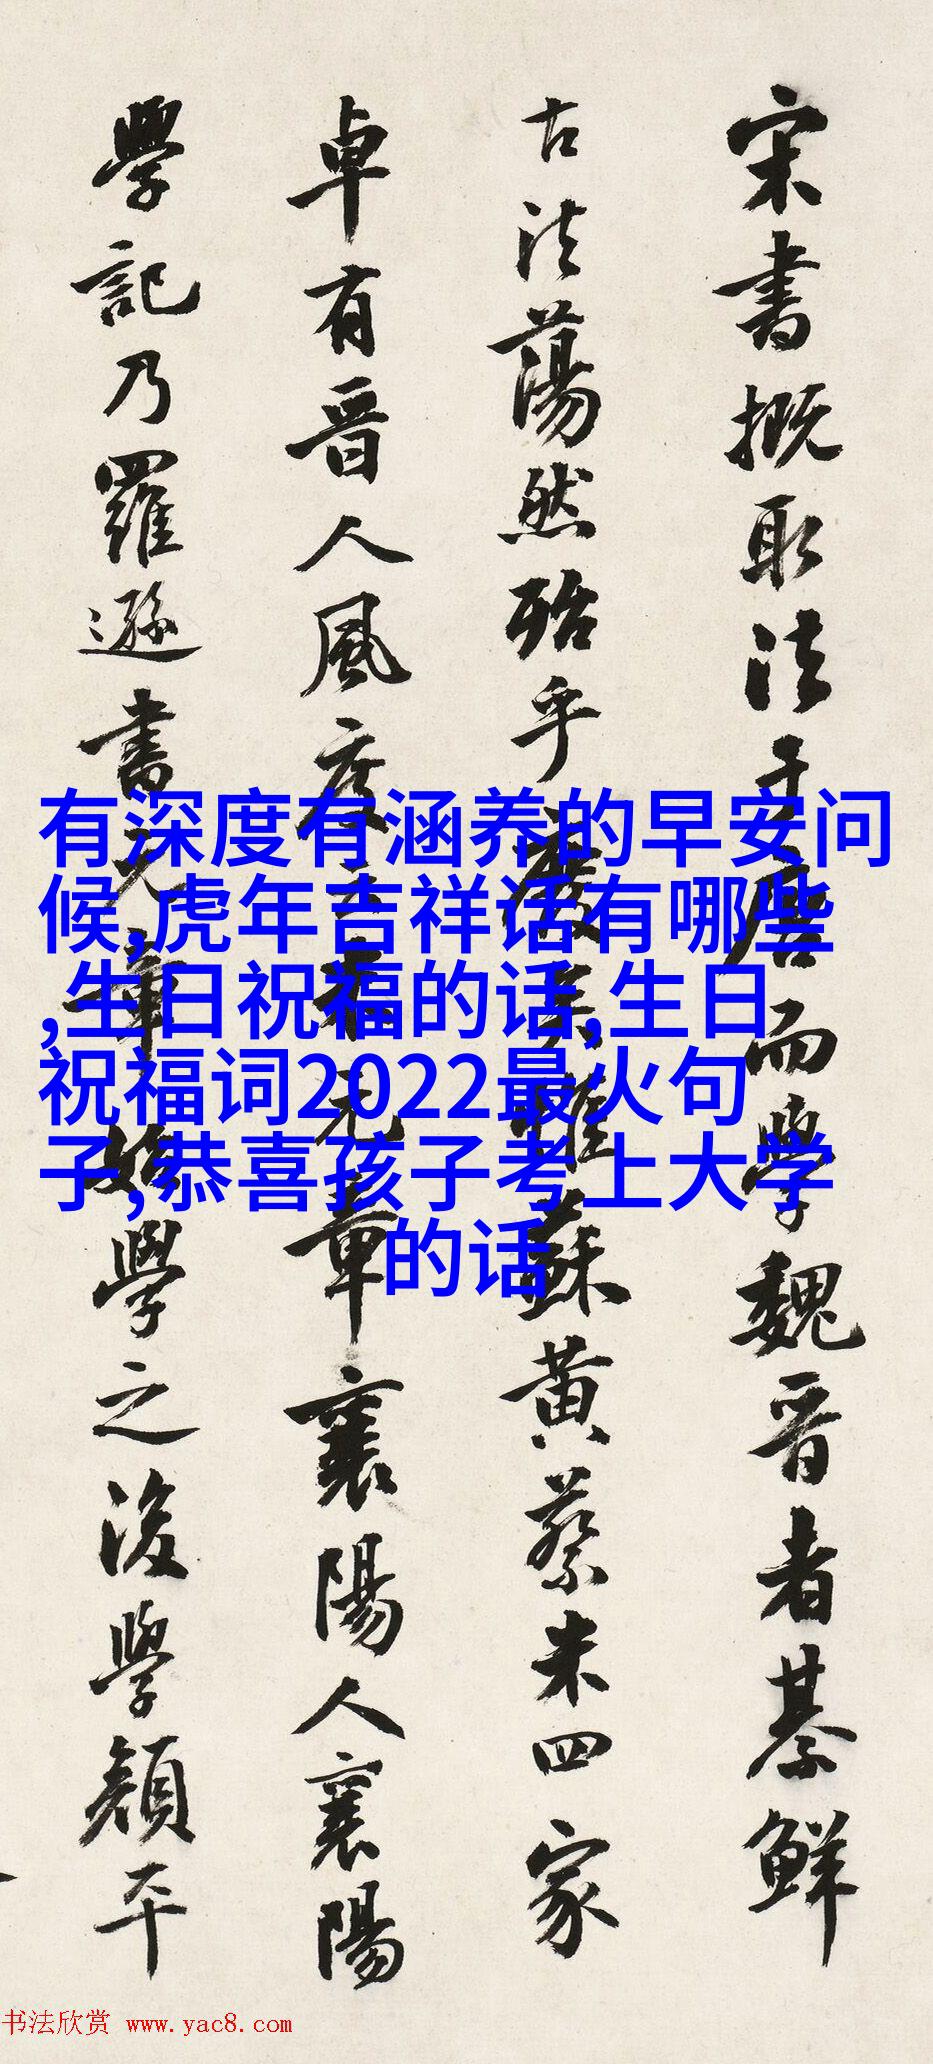 宋書概取法于唐而学魏晋者綦鮮
古法蕩然殆乎廢矣惟蘇黃蔡米四家
卓有晋人風度米元章襄陽人襄陽
學記乃羅遜書元章始學之後學顏平
有深度有涵养的早安问
候,虎年吉祥话有哪些
,生日祝福的话,生日
祝福词2022最火句
子,恭喜孩子考上大学
的话
书法欣赏 www.yac8.com